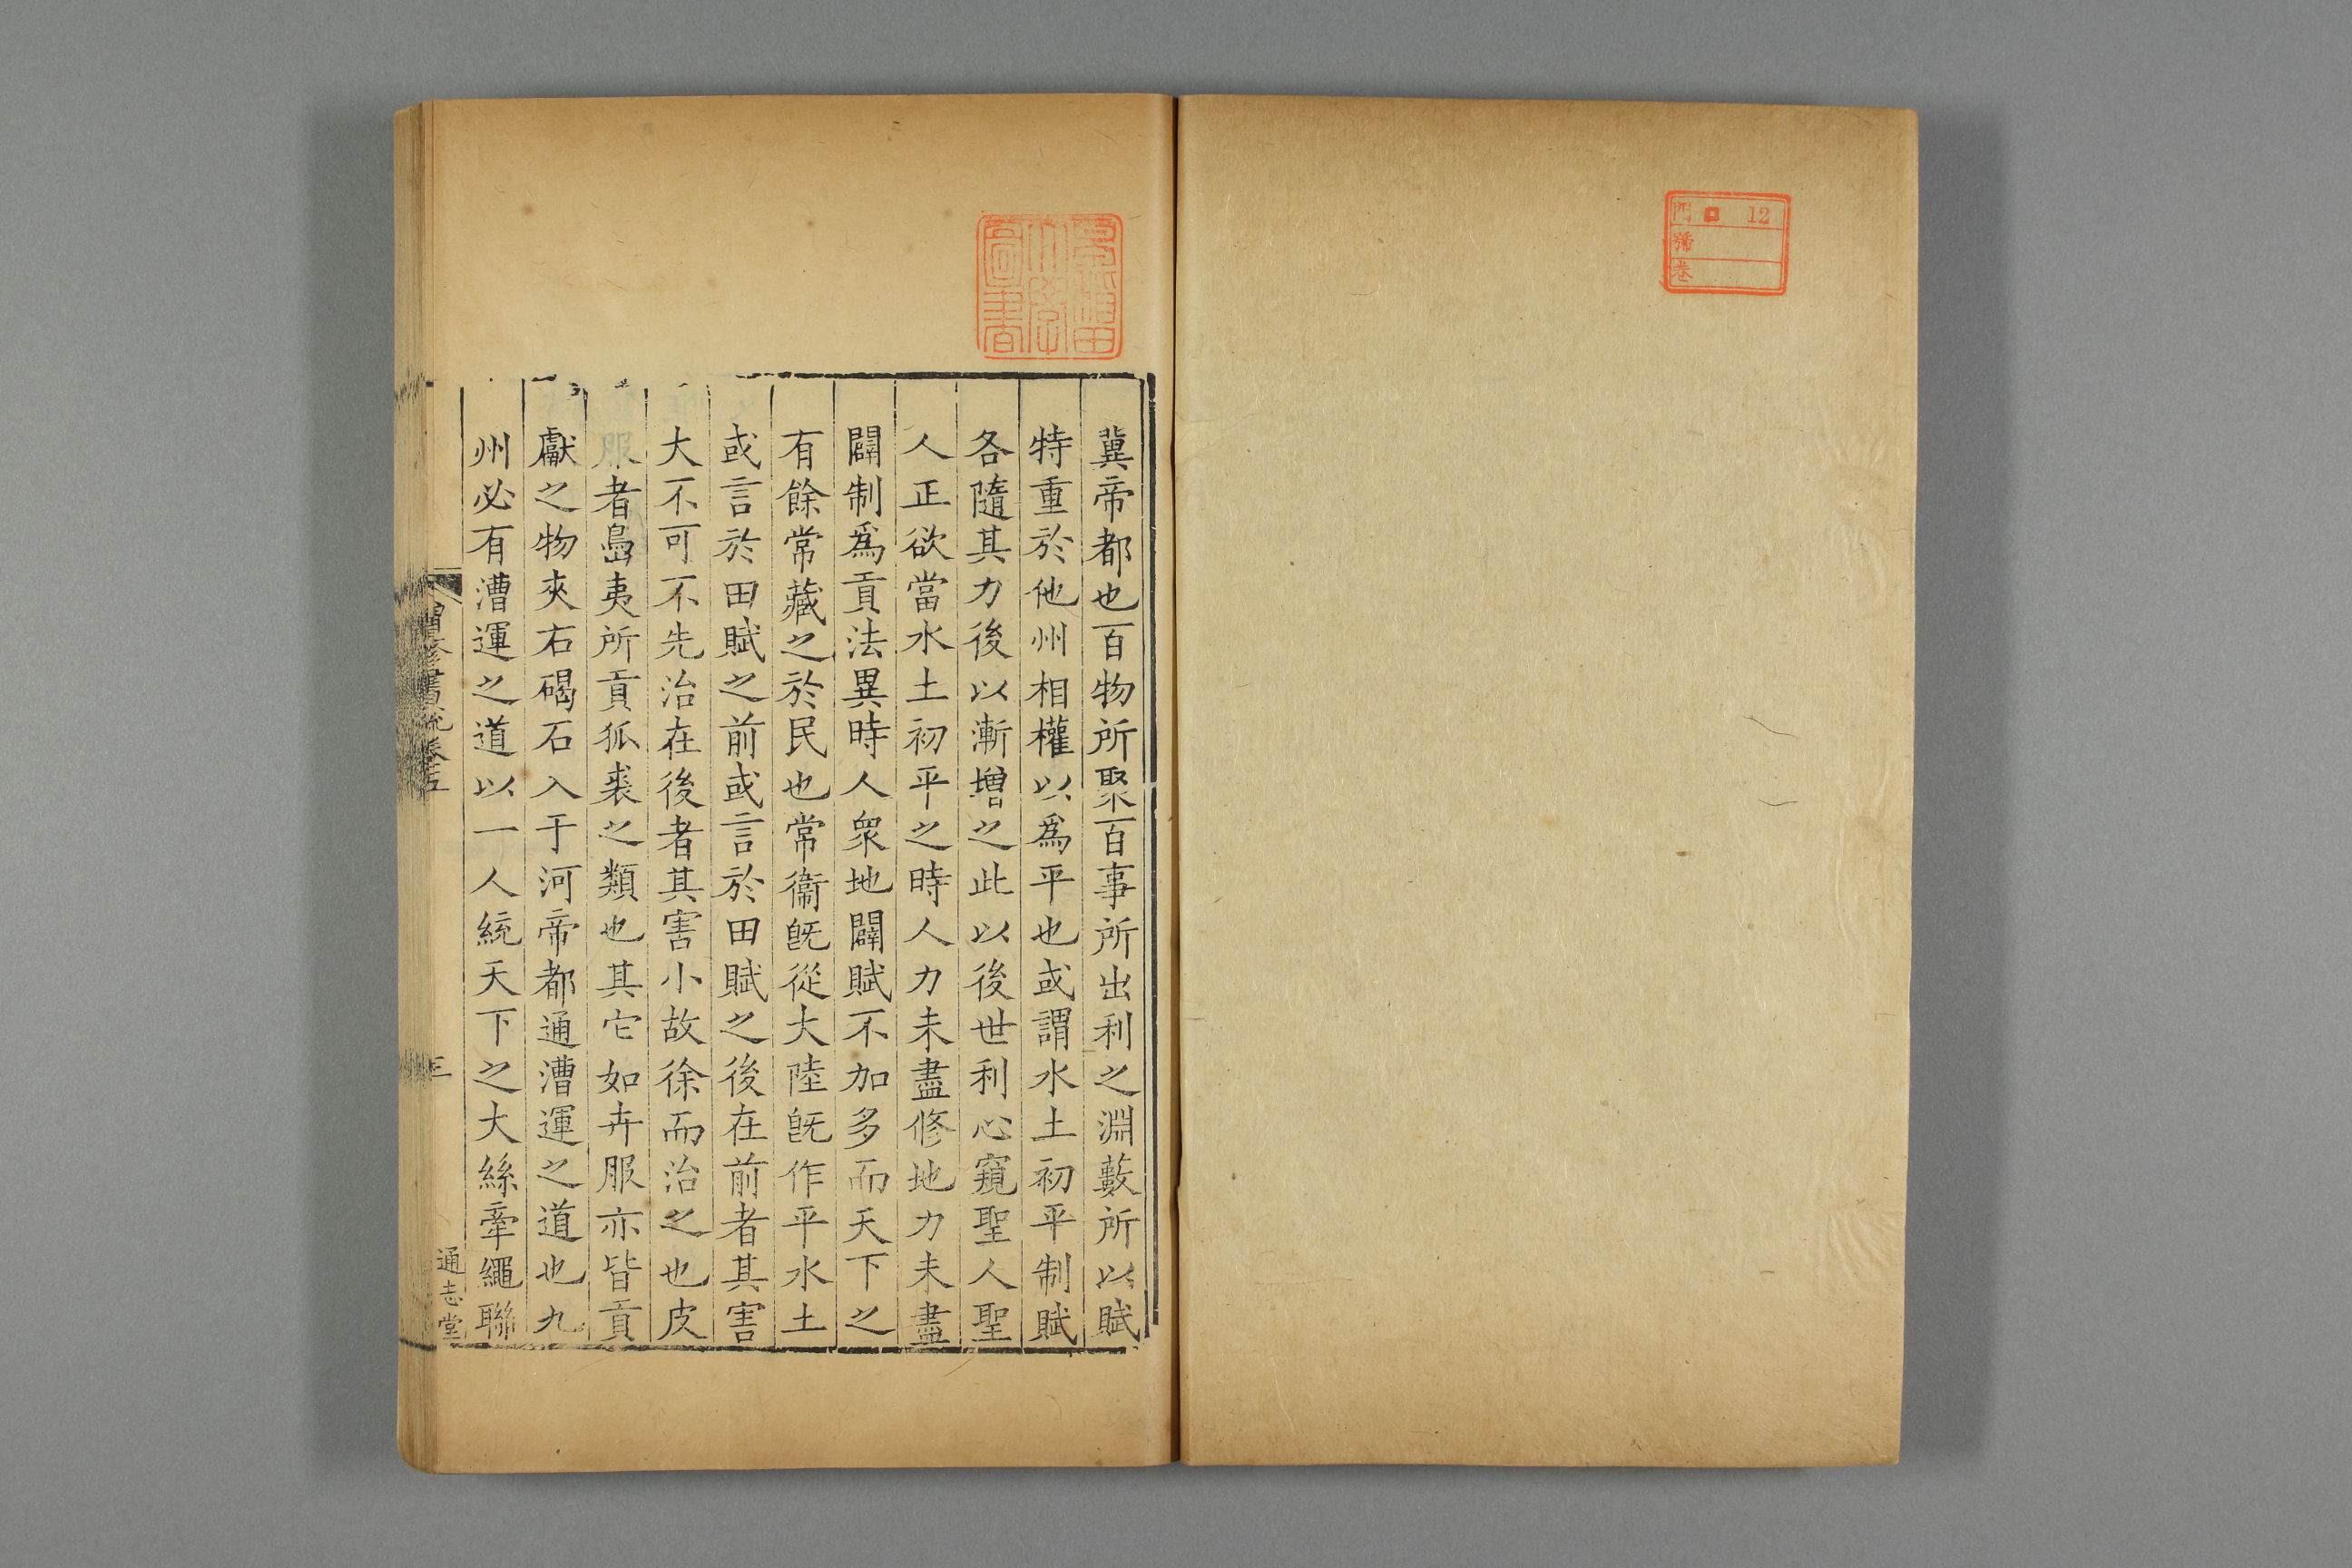 門 口 12
號
卷
早稲田
大學
圖書
冀帝都也百物所聚百事所出利之淵藪所以賦
特重於他州相權以為平也或謂水土初平制賦
各隨其力後以漸增之此以後世利心窺聖人聖
人正欲當水土初平之時人力未盡修地力未盡
闢制為貢法異時人衆地闢賦不加多而天下之
有餘常藏之於民也常衞旣從大陸旣作平水土
或言於田賦之前或言於田賦之後在前者其害
大不可不先治在後者其害小故徐而治之也皮
服者島夷所貢狐裘之類也其它如卉服亦皆貢
獻之物夾右碣石入于河帝都通漕運之道也九
州必有漕運之道以一人統天下之大絲牽繩聯
增修書說卷五
三
通志堂